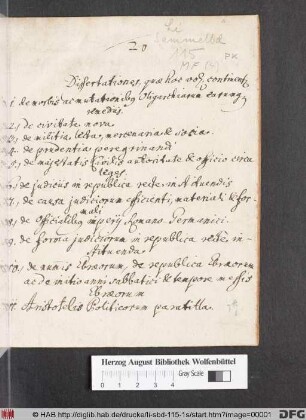 20
Li
Sammelbd
115
MF (2)
PK
Dissertationes, quae hoc vol: continentr
1. de morbis ac mutationibus Oligarchiarum earumque
remediis
2, de civitate nova
3, de militia lecta, mercenaria & socia
4. de prudentia peregrinand
5, de majestatis civilis autoritate & officio circa
leges
6, de judiciis in republica recte instituendis
7, de causa judiciorum efficienti, materiali & for-
mali
8, de officialibus imperij Romano Germanici
9, de forma judiciorum in republica recte in-
stituenda
10, de numis Ebraeorum, de republica Ebraeorum
ac de initio anni sabbatici & tempore messis
Ebraeorum
11. Aristotelis Politicorum paratitla.
Herzog August Bibliothek Wolfenbüttel
Gray Scale
© HAB http://diglib.hab.de/drucke/li-sbd-115-1s/start.htm?image=00001
DFG